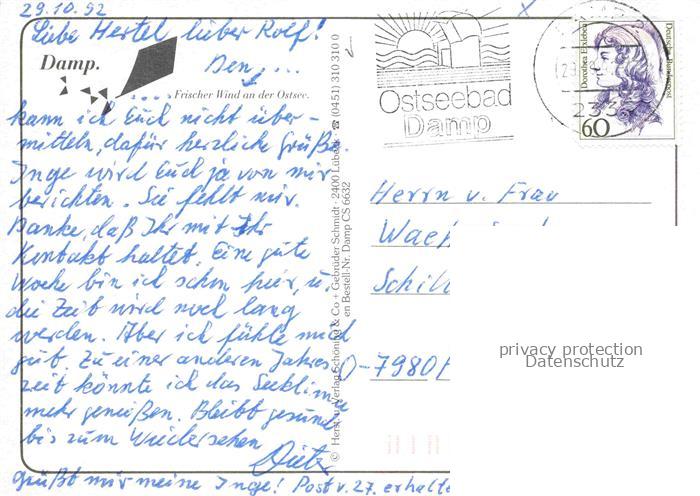 29.10.92
Liebe Hertel, lieber Rolf!
Damp.
Den, ...
.... Frischer Wind an der Ostsee.
kann ich Euch nicht über-
mitteln, dafür herzliche Grüße.
Inge wird Euch ja von mir
berichten. Sie fehlt mir.
Danke, daß Ihr mit Ihr
Kontakt haltet. Eine gute
Woche bin ich schon hier, u.
die Zeit wird noch lang
werden. Aber ich fühle mich
gut. Zu einer anderen Jahres-
zeit könnte ich das Seeklima
mehr genießen. Bleibt gesund
bis zum Wiedersehen
Dietz
Grüßt mir meine Inge! Post v. 27. erhalte
© Herst. u. Verlag Schöning & Co + Gebrüder Schmidt · 2400 Lübeck ☎ (0451) 310 310 0
en Bestell-Nr. Damp CS 6632
Ostseebad
Damp
Dorothea Erxleben
Deutsche Bundespost
60
Herrn u. Frau
Schill
D-7980
privacy protection
Datenschutz